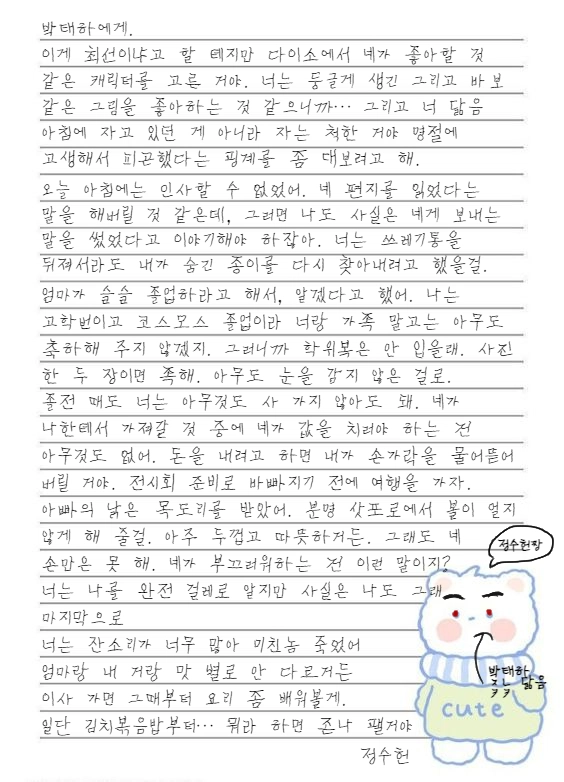 박태하에게.
이게 최선이냐고 할 테지만 다이소에서 네가 좋아할 것
같은 캐릭터를 고른 거야. 너는 둥글게 생긴 그리고 바보
같은 그림을 좋아하는 것 같으니까… 그리고 너 닮음
아침에 자고 있던 게 아니라 자는 척한 거야 명절에
고생해서 피곤했다는 핑계를 좀 대보려고 해.
오늘 아침에는 인사할 수 없었어. 네 편지를 읽었다는
말을 해버릴 것 같은데, 그러면 나도 사실은 네게 보내는
말을 썼었다고 이야기해야 하잖아. 너는 쓰레기통을
뒤져서라도 내가 숨긴 종이를 다시 찾아내려고 했을걸.
엄마가 슬슬 졸업하라고 해서, 알겠다고 했어. 나는
고학번이고 코스모스 졸업이라 너랑 가족 말고는 아무도
축하해 주지 않겠지. 그러니까 학위복은 안 입을래. 사진
한 두 장이면 족해. 아무도 눈을 감지 않은 걸로.
졸전 때도 너는 아무것도 사 가지 않아도 돼. 네가
나한테서 가져갈 것 중에 네가 값을 치러야 하는 건
아무것도 없어. 돈을 내려고 하면 내가 손가락을 물어뜯어
버릴 거야. 전시회 준비로 바빠지기 전에 여행을 가자.
아빠의 낡은 목도리를 받았어. 분명 삿포로에서 볼이 얼지
않게 해 줄걸. 아주 두껍고 따뜻하거든. 그래도 네
손만은 못 해. 네가 부끄러워하는 건 이런 말이지?
너는 나를 완전 걸레로 알지만 사실은 나도 그래
마지막으로
너는 잔소리가 너무 많아 미친놈 죽었어
엄마랑 내 거랑 맛 별로 안 다르거든
이사 가면 그때부터 요리 좀 배워볼게.
일단 김치볶음밥부터… 뭐라 하면 존나 팰거야
정수헌
정수헌짱
박태하
존 닮음
ㅋㅋ
cute